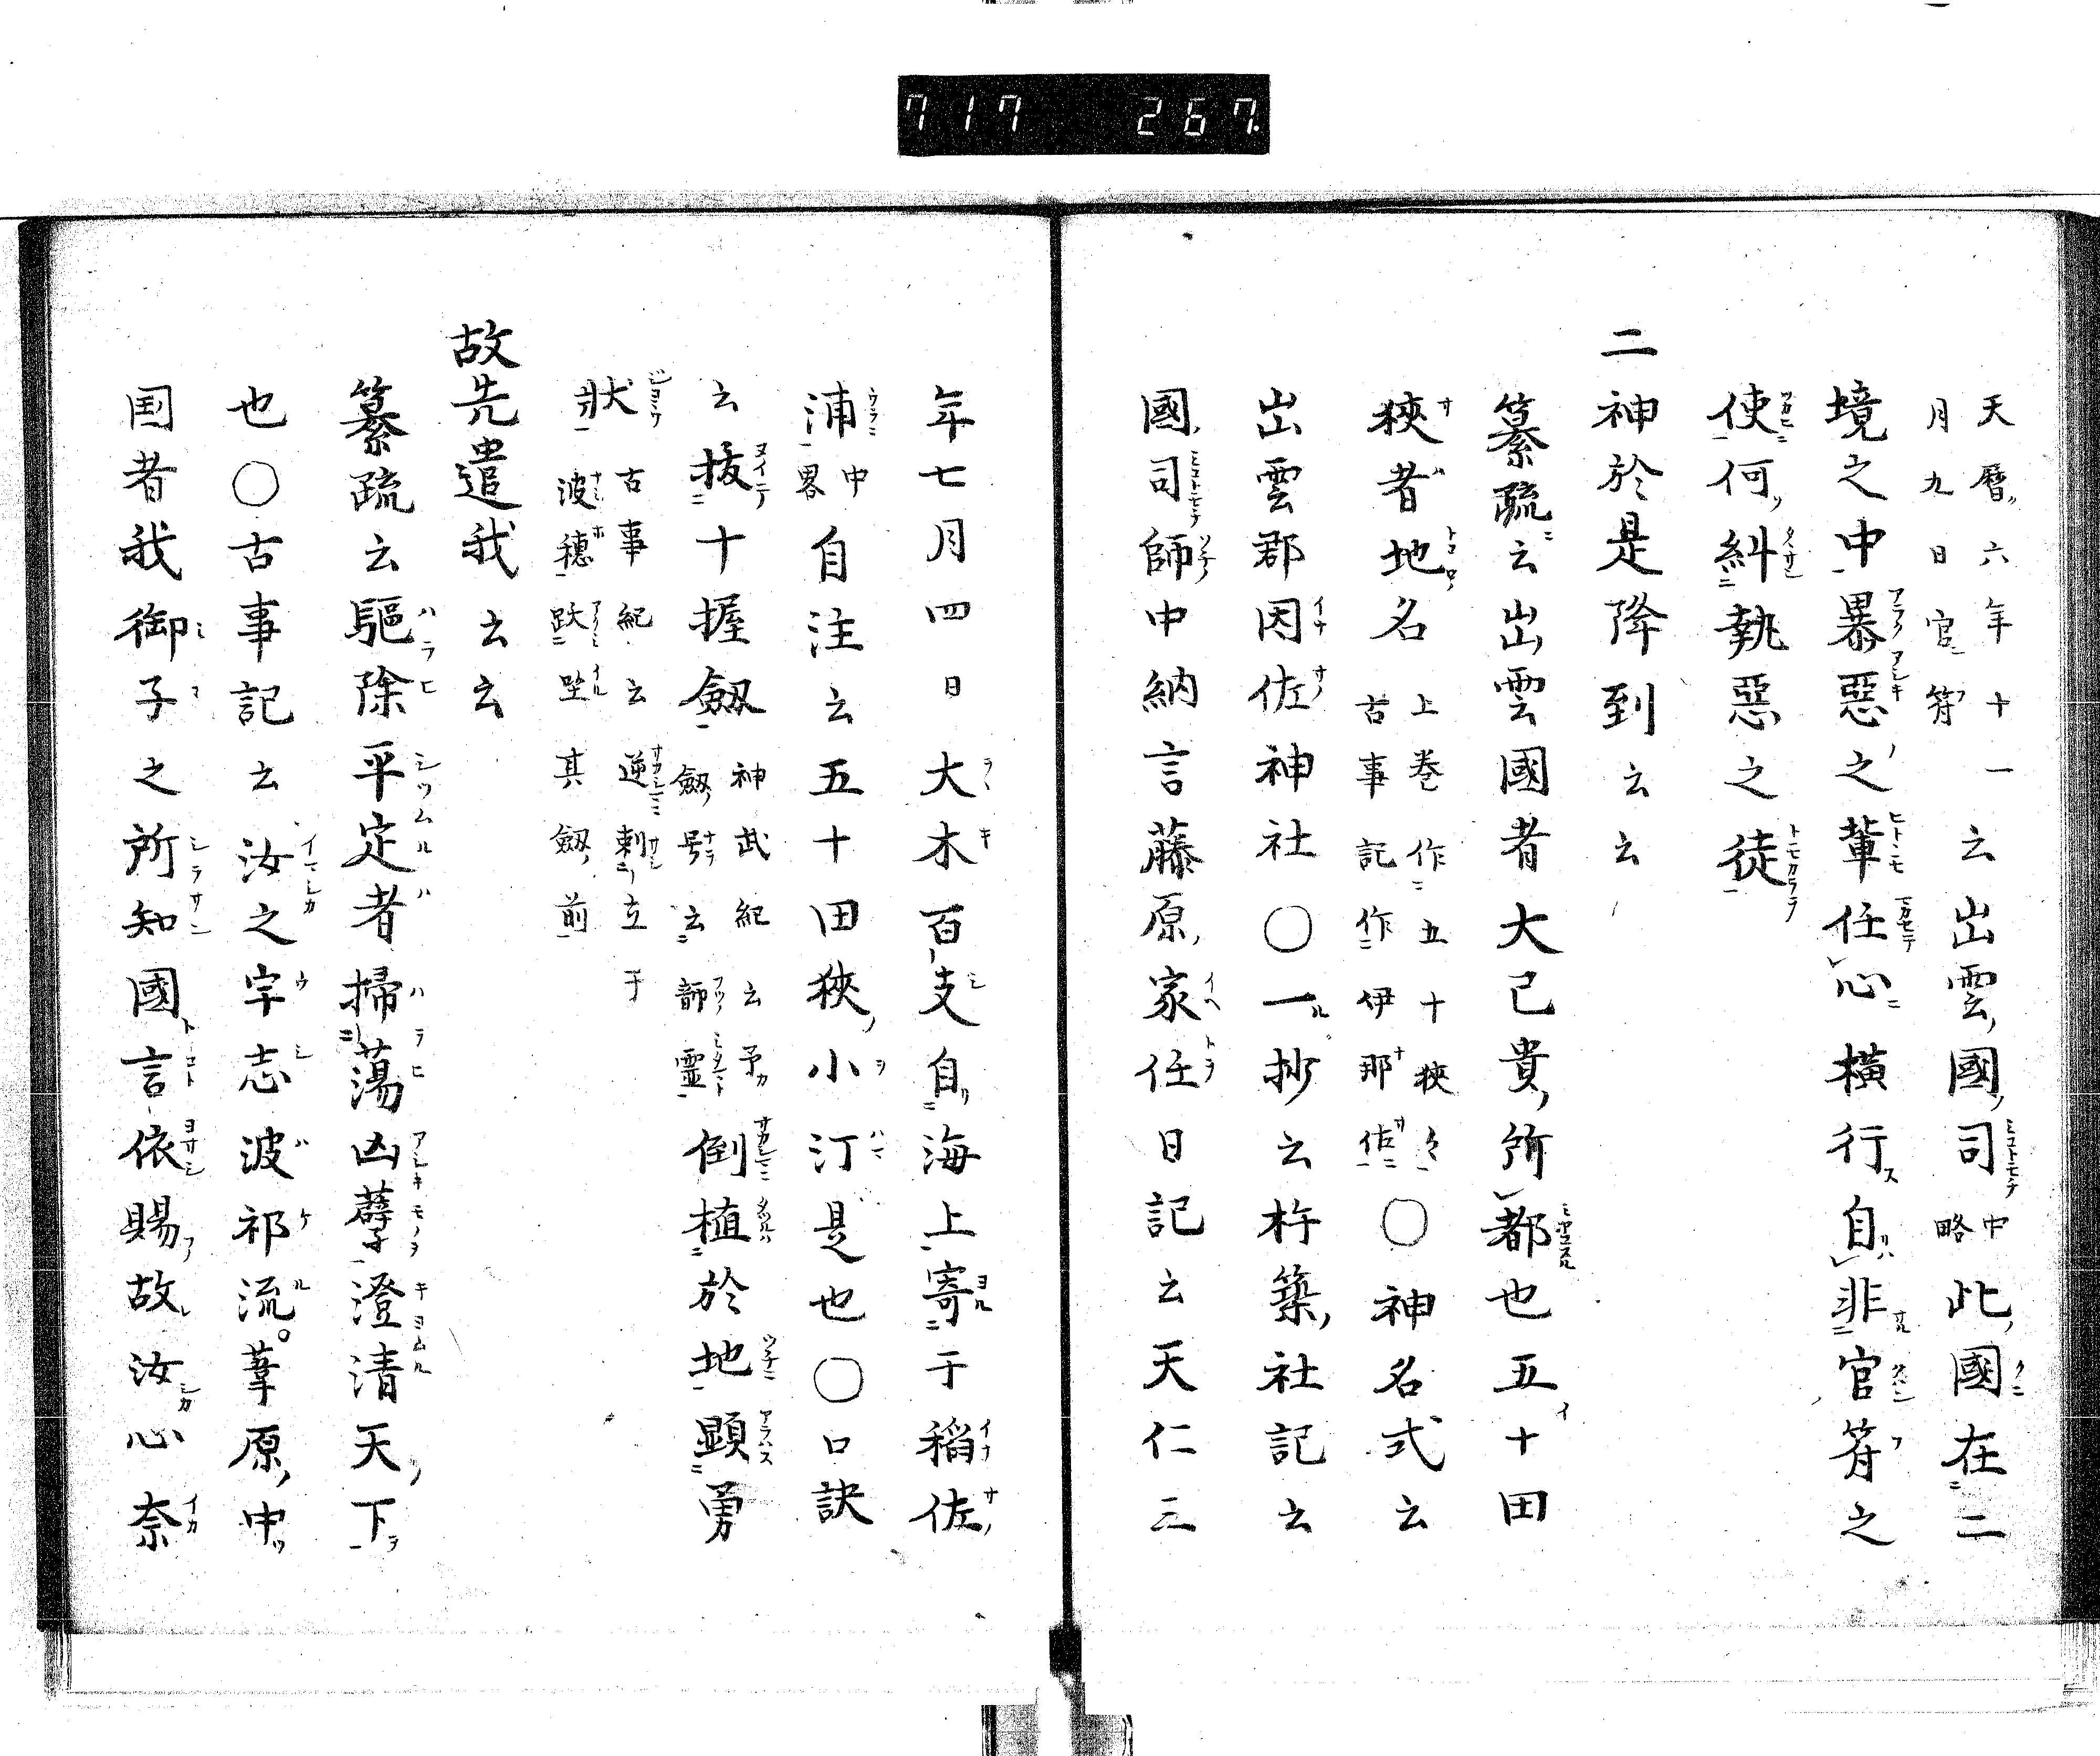 717 267.
天曆六年十一月九日官符云出雲國司中略此國在二
境之中暴惡之輩任心橫行自非官符之
使何糾執惡之徒
二神於是降到云云
纂疏云出雲國者大己貴所都也五十田
狹者地名上卷作五十狹々古事記作伊那佐〇神名式云
出雲郡因佐神社〇一抄云杵築社記云
國司師中納言藤原家任日記云天仁三
年七月四日大木百支自海上寄于稻佐
浦中畧自注云五十田狹小汀是也〇口訣
云拔十握劔神武紀云予劔号云韴靈倒植於地顯勇
狀古事紀云逆刺立于波穗趺坐其劔前
故先遣我云云
纂疏云驅除平定者掃蕩凶孽澄清天下
也〇古事記云汝之宇志波祁流葦原中
国者我御子之所知國言依賜故汝心奈